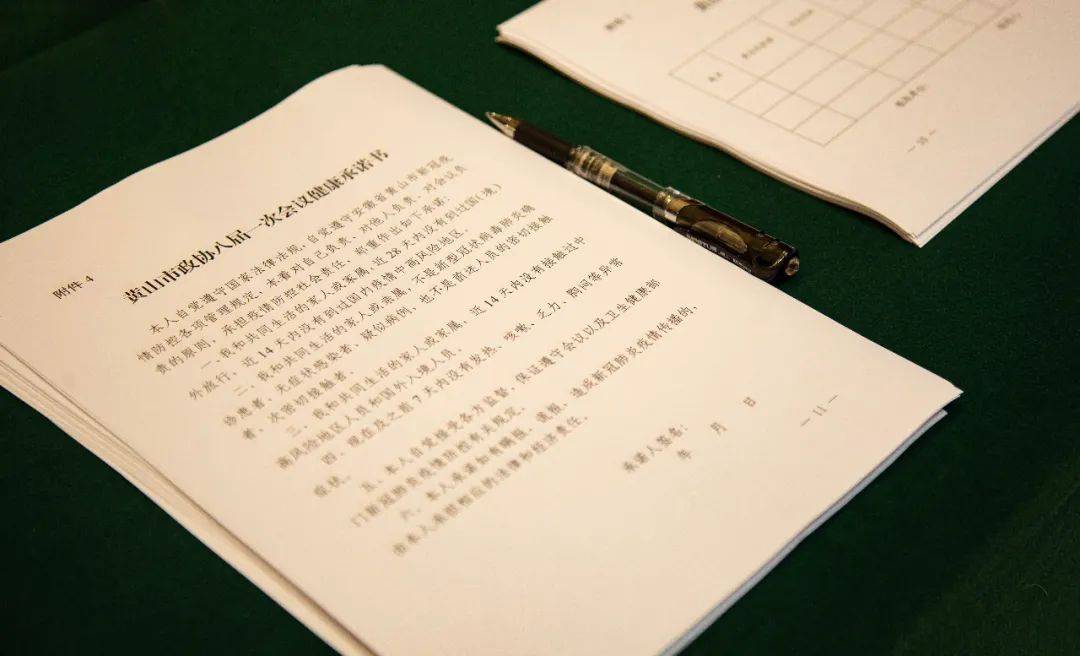 附件 4
黄山市政协八届一次会议健康承诺书
本人自觉遵守国家法律法规，自觉遵守安徽省黄山市新冠疫
情防控各项管理规定，本着对自己负责、对他人负责、对会议负
责的原则，承担疫情防控社会责任，郑重作出如下承诺：
一、我和共同生活的家人或家属，近 28 天内没有到过国(境)
外旅行，近 14 天内没有到过国内疫情中高风险地区。
二、我和共同生活的家人或亲属，不是新型冠状病毒肺炎确
诊患者、无症状感染者、疑似病例，也不是前述人员的密切接触
者、次密切接触者。
三、我和共同生活的家人或家属，近 14 天内没有接触过中
高风险地区人员和国外入境人员。
四、现在及之前 7 天内没有发热、咳嗽、乏力、胸闷等异常
症状。
五、本人自觉接受各方监督，保证遵守会议以及卫生健康部
门新冠肺炎疫情防控有关规定。
六、本人承诺如有瞒报、谎报，造成新冠肺炎疫情传播的，
由本人承担相应的法律和经济责任。
承诺人签名：
年 月 日
— 11 —
— 10 —